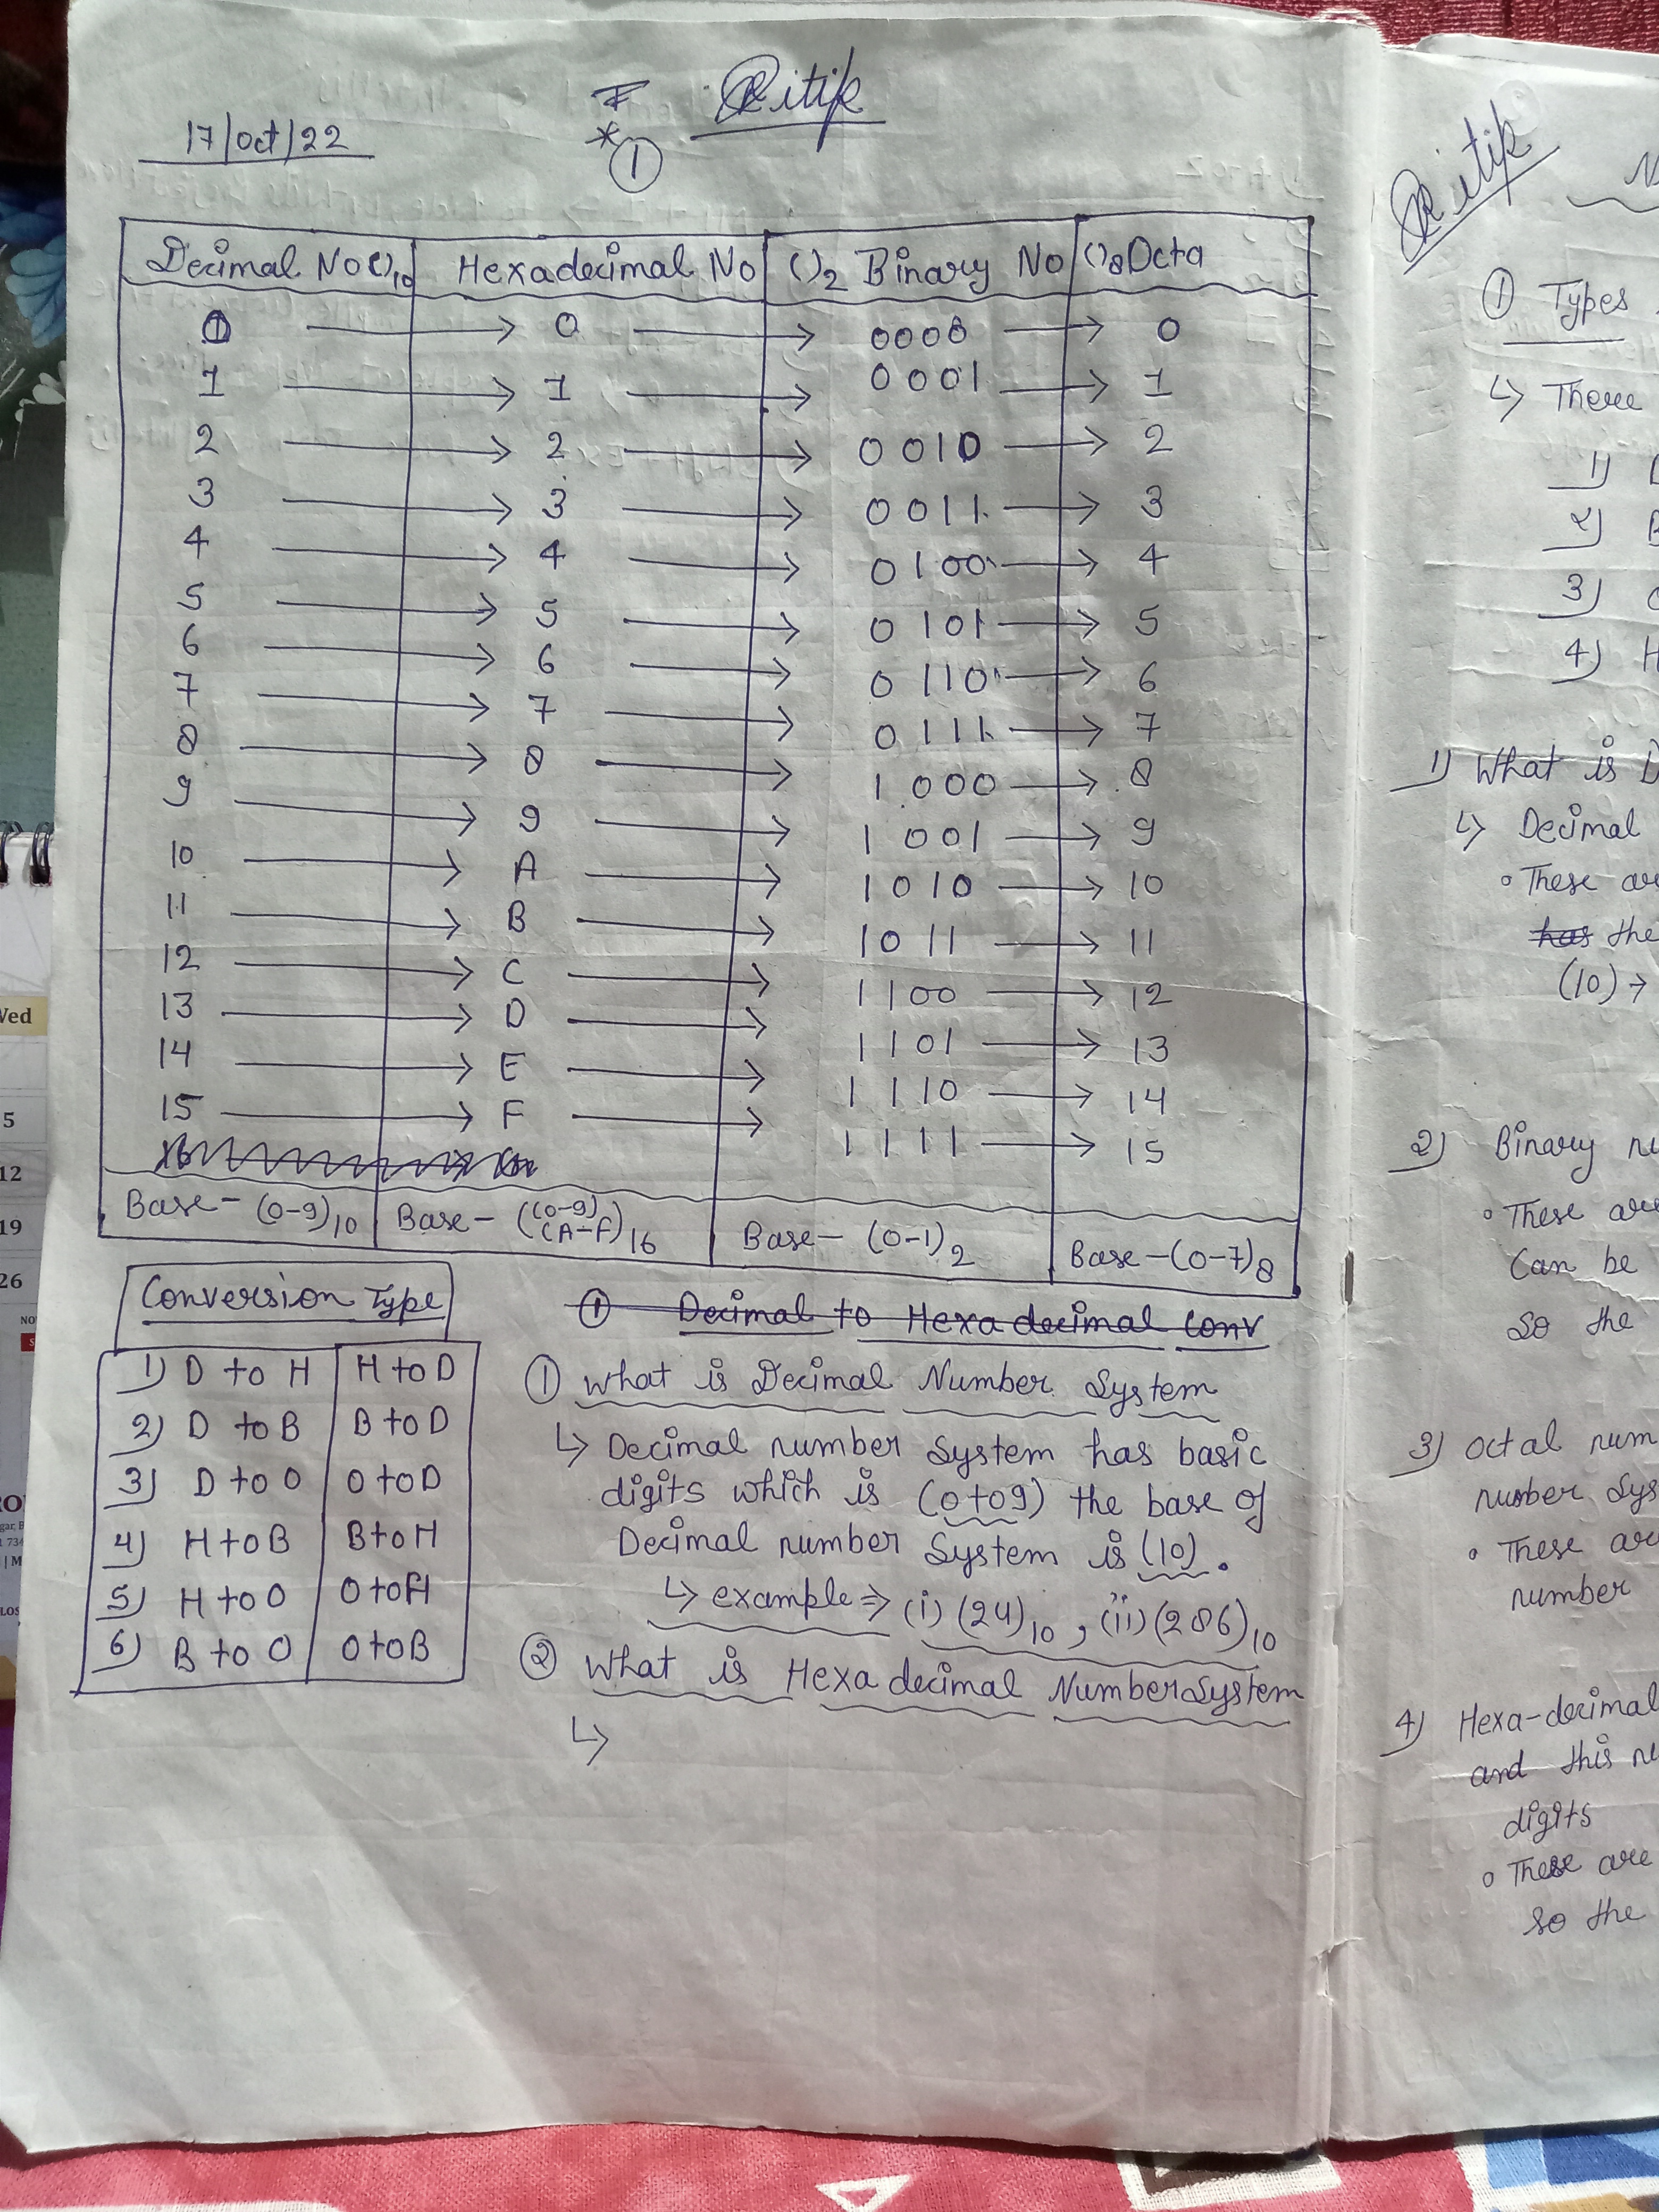 17/Oct/22
Ritik
1
Decimal No ()10 Hexadecimal No ()2 Binary No ()8 Octa
0 → 0 → 0000 → 0
1 → 1 → 0001 → 1
2 → 2 → 0010 → 2
3 → 3 → 0011 → 3
4 → 4 → 0100 → 4
5 → 5 → 0101 → 5
6 → 6 → 0110 → 6
7 → 7 → 0111 → 7
8 → 8 → 1000 → 8
9 → 9 → 1001 → 9
10 → A → 1010 → 10
11 → B → 1011 → 11
12 → C → 1100 → 12
13 → D → 1101 → 13
14 → E → 1110 → 14
15 → F → 1111 → 15
Base - (0-9)10 Base - ((0-9) (A-F))16 Base - (0-1)2 Base - (0-7)8
Conversion Type
1) D to H H to D
2) D to B B to D
3) D to O O to D
4) H to B B to H
5) H to O O to H
6) B to O O to B
① Decimal to Hexa decimal Conv
① What is Decimal Number System
↳ Decimal number System has basic
digits which is (0 to 9) the base of
Decimal number System is (10).
↳ example ⇒ (i) (24)10, (ii) (286)10
② What is Hexa decimal Number System
↳
Ritik
① Types
↳ There
1)
2)
3)
4)
1) What is
↳ Decimal
• These
has the
(10) →
2) Binary
• These are
Can be
So the
3) Octal num
number Sys
• These are
number
4) Hexa-decimal
and this
digits
• These are
So the
Wed
5
12
19
26